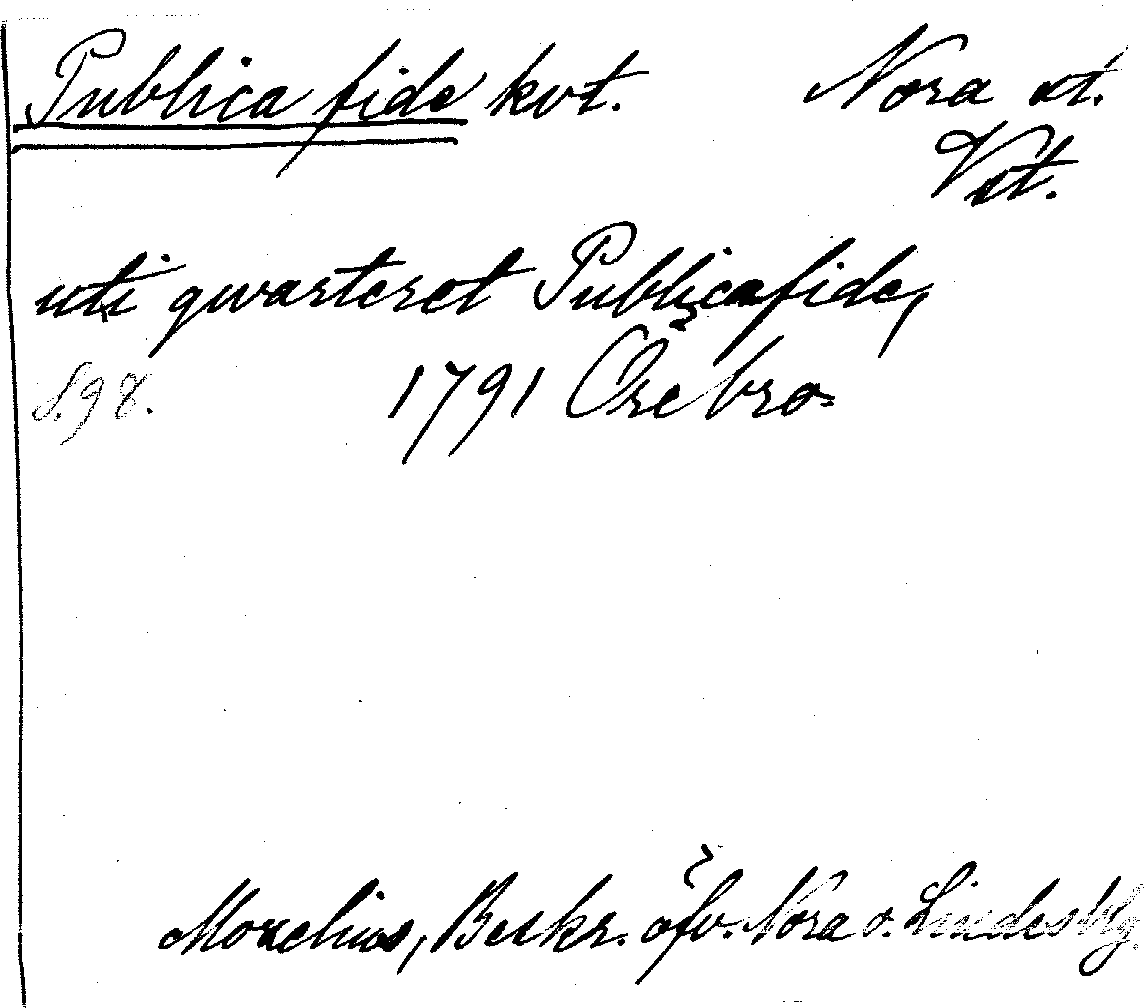 Publica fide kvt. Nora st.
Vst.
uti qwarteret Publicafide,
S.98. 1791 Örebro
Moxelius, Beskr. öfv. Nora o. Lindesbg.